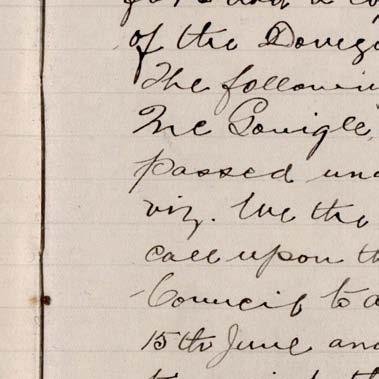 of the Doneg
The followin
Mc Gonigle,
passed una
viz. We the
call upon th
Council to a
15th June and